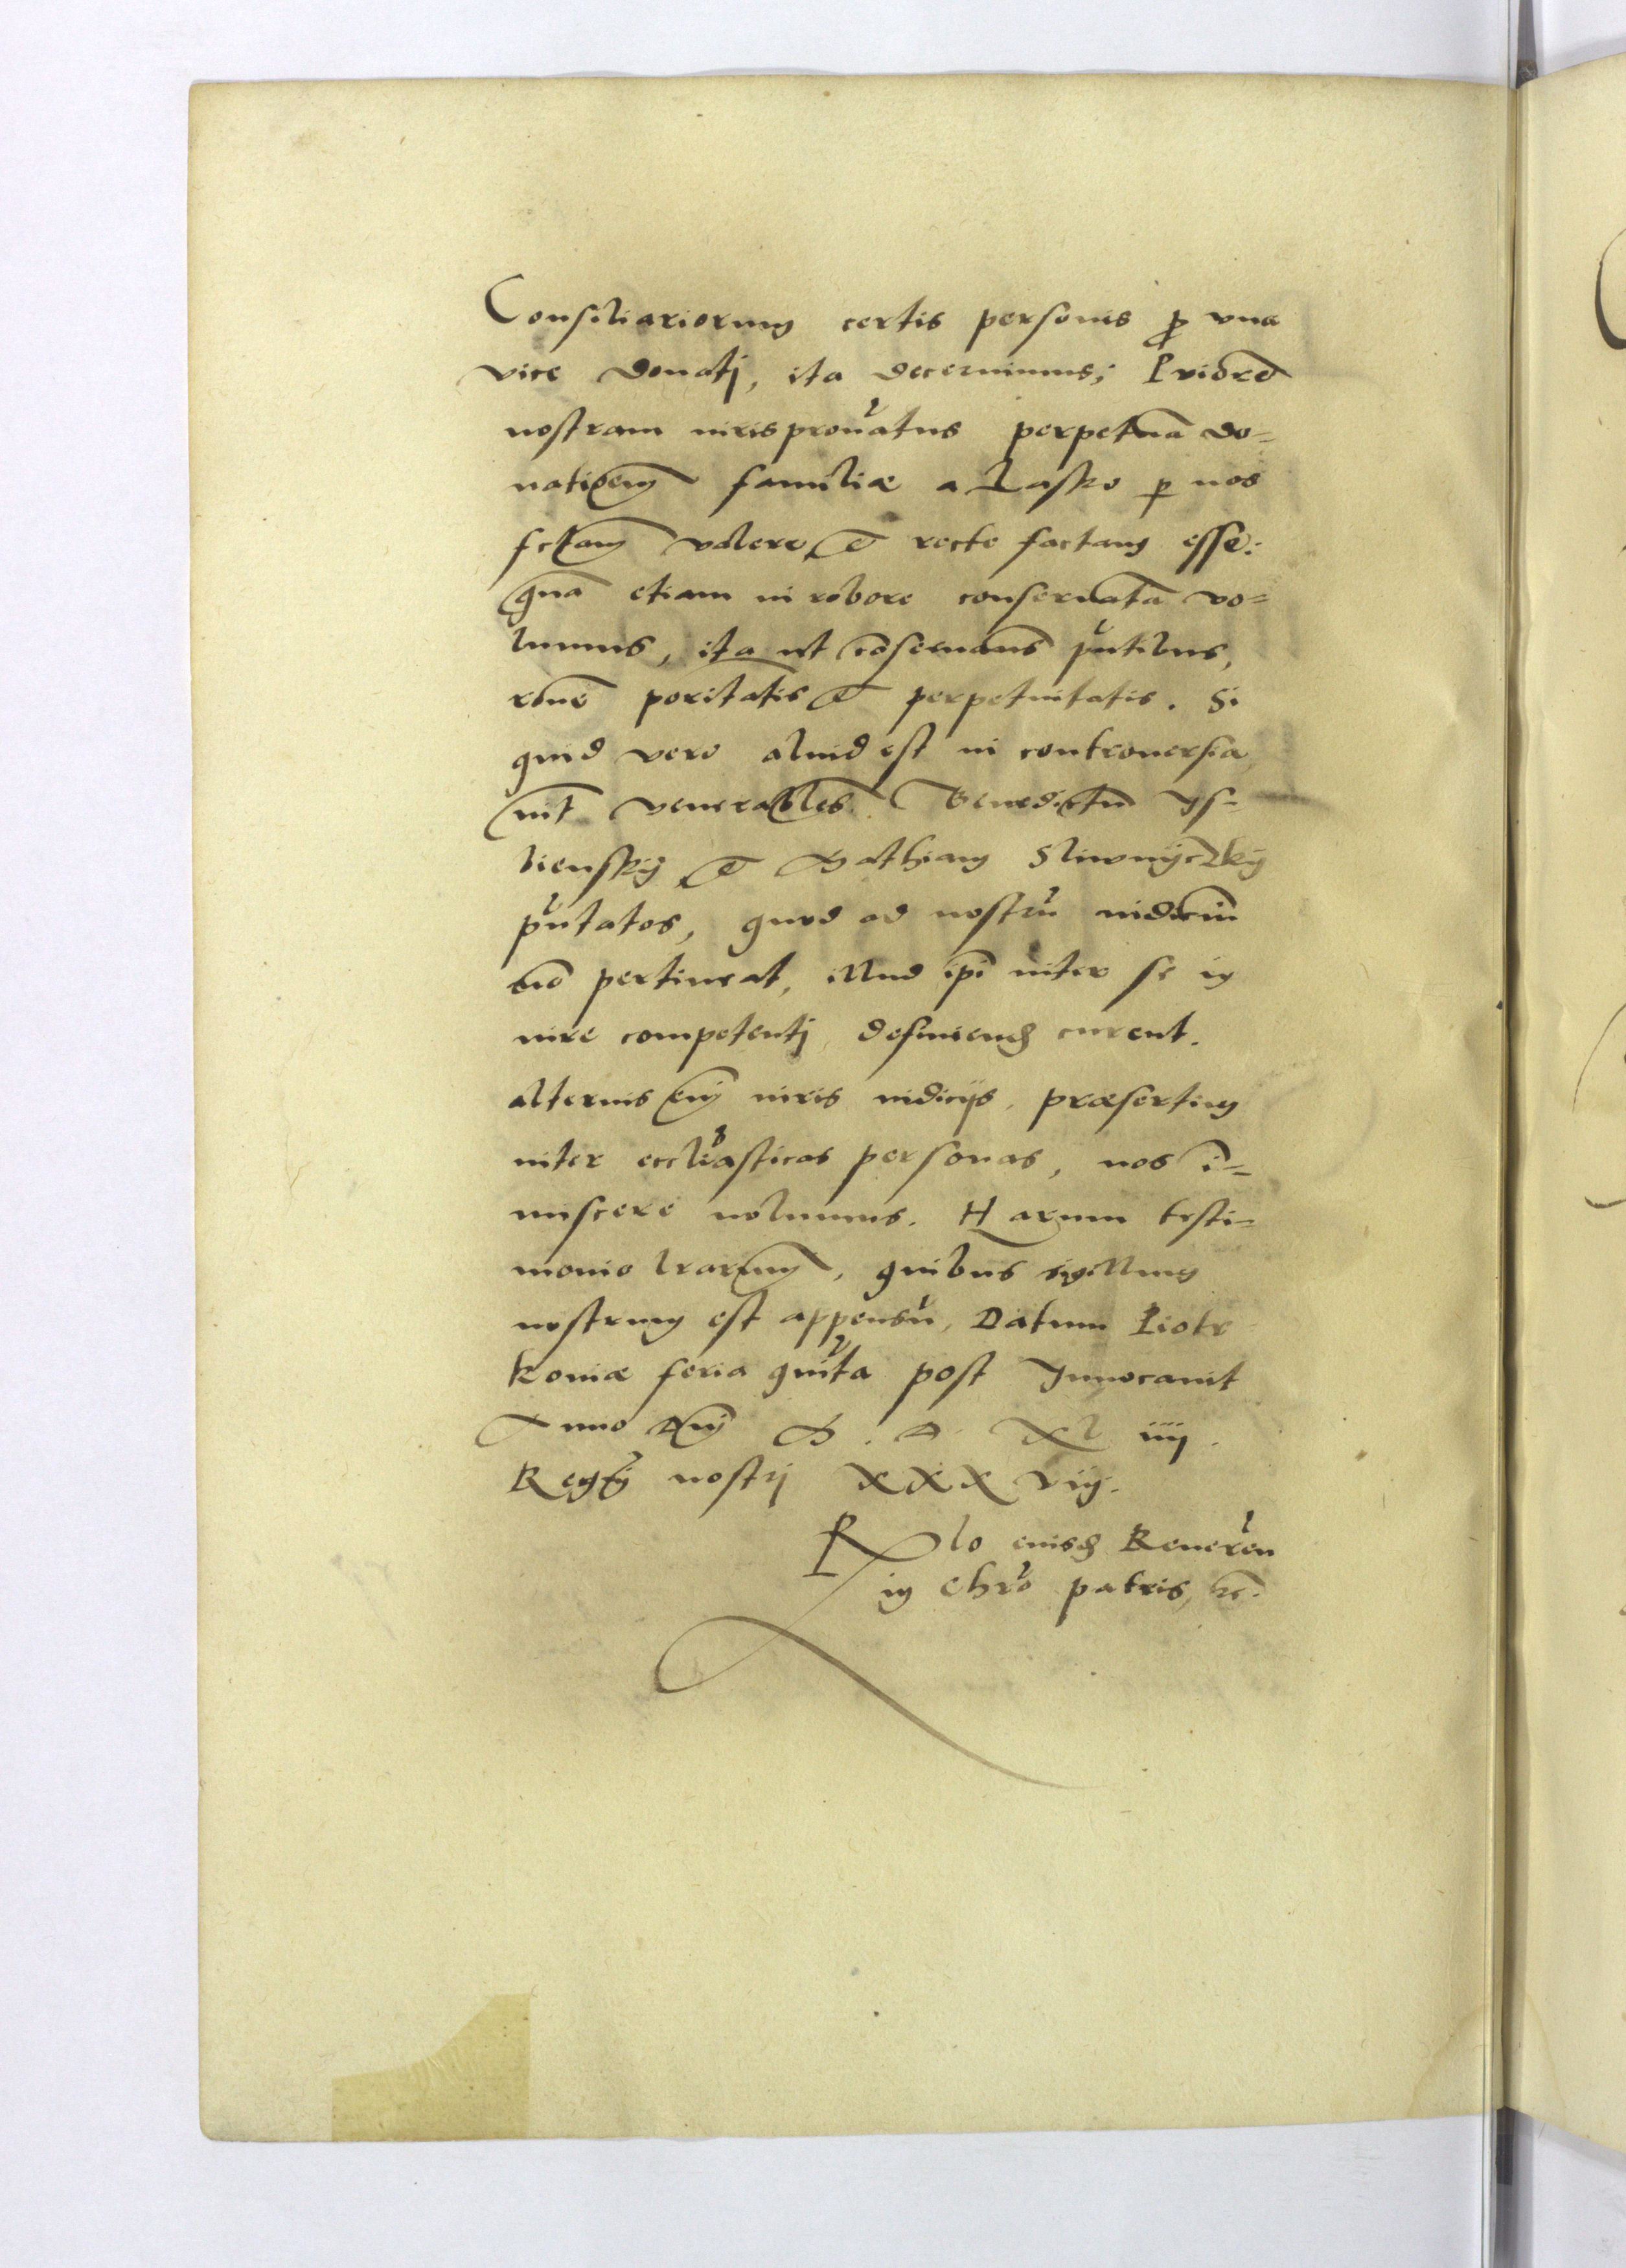 Consiliariorum certis personis ꝓ vna
vice donatj, ita decernimus; Priorē
nostram iurispron̄atus perpetuā do=
natiōem familiæ a Lasko ꝑ nos
fctam valere et recte factam esse:
quā etiam in robore conseruatā vo=
lumus, ita ut cōseruamꝰ p̄ntibus,
rōne prioritatis et perpetuitatis. Si
quid vero aliud est in controuersia
int̄ venerabiles Benedictū Ys=
biensky et Mathiam Sliwnyczky
p̄ntatos, quod ad nostrū iudiciū
nō pertineat, illud ip̄i inter se in
iure competentj definiend curent.
alterius em̄ iuris iudicijs, præsertim
inter eccliasticas personas, nos ī=
miscere nolumus. Harum testi=
monio lr̄arum, quibus sigillum
nostrum est appensū, Datum Piotr
kouiæ feria quīta post Innocauit
Anno dnj M. D. XL iiij.
Regnj nostrj XXX viij.
R̃lo eiusd Reueren
in Chrō patris, &c̄.